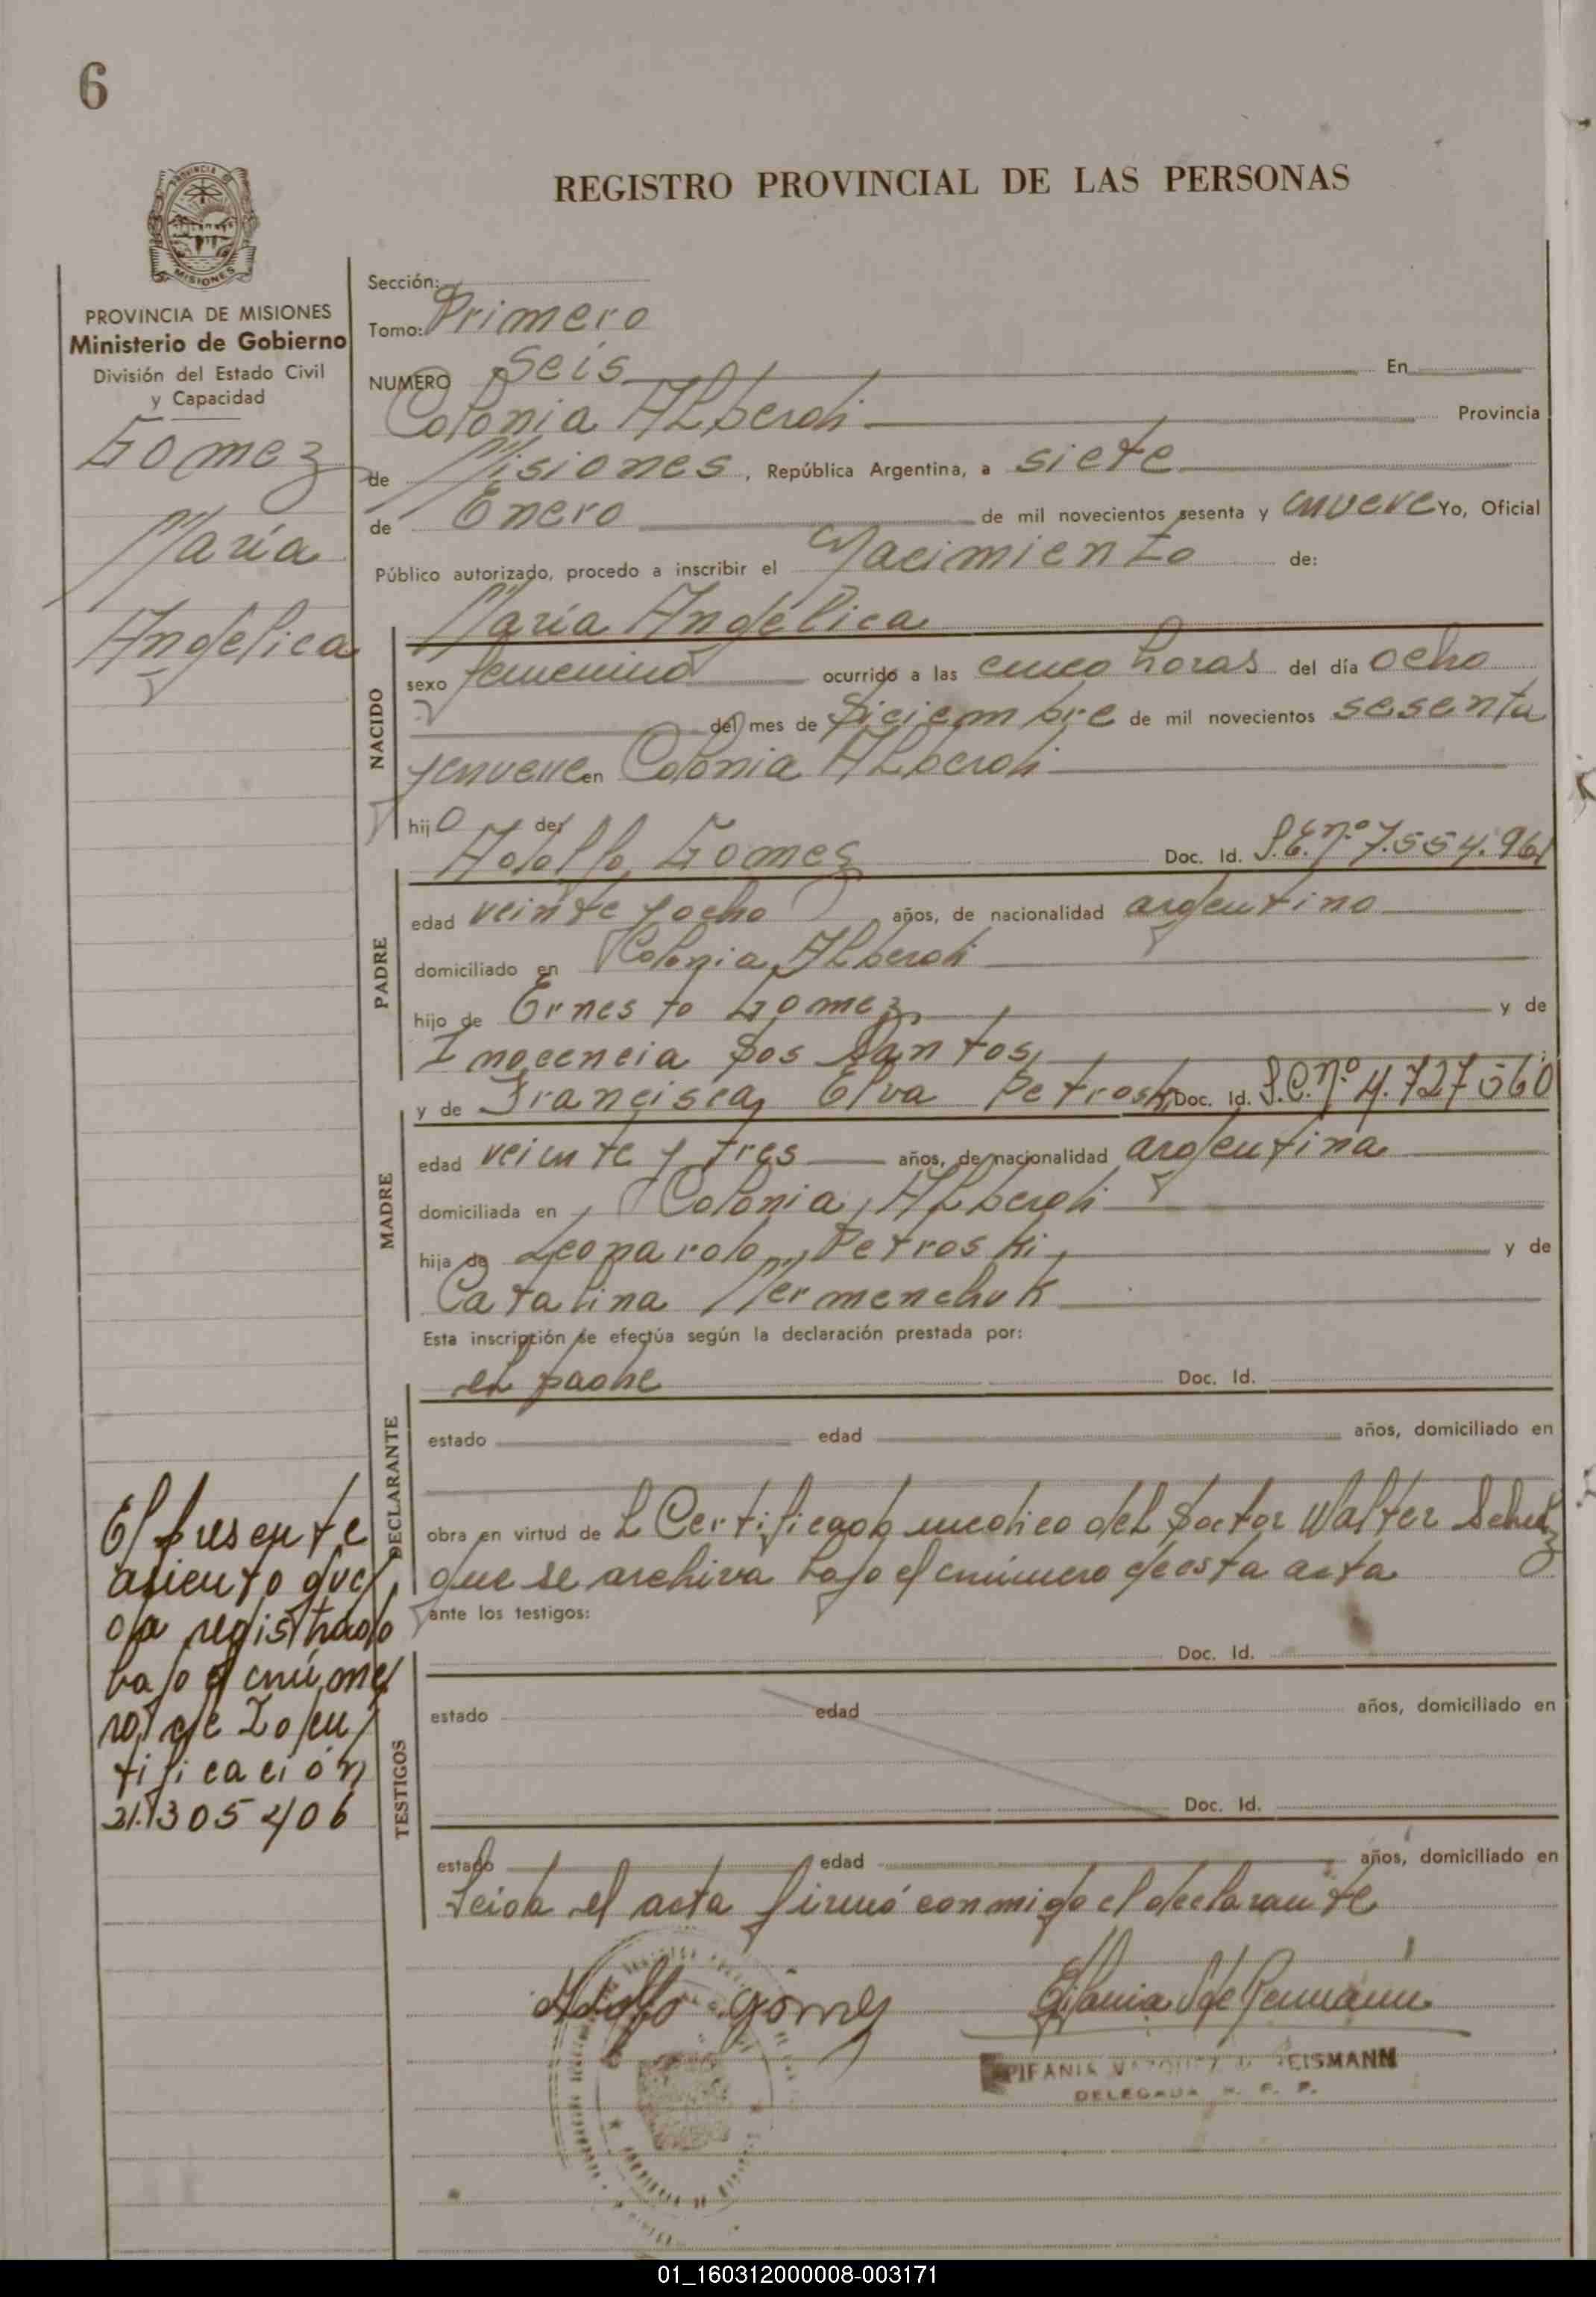 6
REGISTRO PROVINCIAL DE LAS PERSONAS
PROVINCIA DE MISIONES
Ministerio de Gobierno
División del Estado Civil
y Capacidad
Gomez
María
Angélica
Sección:
Tomo: Primero
NUMERO Seis En
Colonia Alberdi Provincia
de Misiones, República Argentina, a siete
de Enero de mil novecientos sesenta y nueve Yo, Oficial
Público autorizado, procedo a inscribir el Nacimiento de:
NACIDO
María Angélica
sexo femenino ocurrido a las cinco horas del día ocho
del mes de Diciembre de mil novecientos sesenta
y nueve en Colonia Alberdi
hijo de:
PADRE
Adolfo Gomez Doc. Id. L.E.nº 7.554.961
edad veinte y ocho años, de nacionalidad argentino
domiciliado en Colonia Alberdi
hijo de Ernesto Gomez y de
Inocencia Dos Santos
MADRE
y de Francisca Elva Petroski Doc. Id. L.C.nº 4.727560
edad veinte y tres años, de nacionalidad argentina
domiciliada en Colonia Alberdi
hija de Leonardo Petroski y de
Catalina Mermenchuk
Esta inscripción se efectúa según la declaración prestada por:
DECLARANTE
el padre Doc. Id.
estado edad años, domiciliado en
obra en virtud de L Certificado medico del Doctor Walter
que se archiva bajo el número de esta acta
ante los testigos:
TESTIGOS
Doc. Id.
estado edad años, domiciliado en
Doc. Id.
estado edad años, domiciliado en
Leida el acta firmó conmigo el declarante
El presente
asiento que
da registrado
bajo el núme
ro de Iden
tificación
21.305406
Adolfo Gomez
DELEGADA R. P. P.
01_160312000008-003171